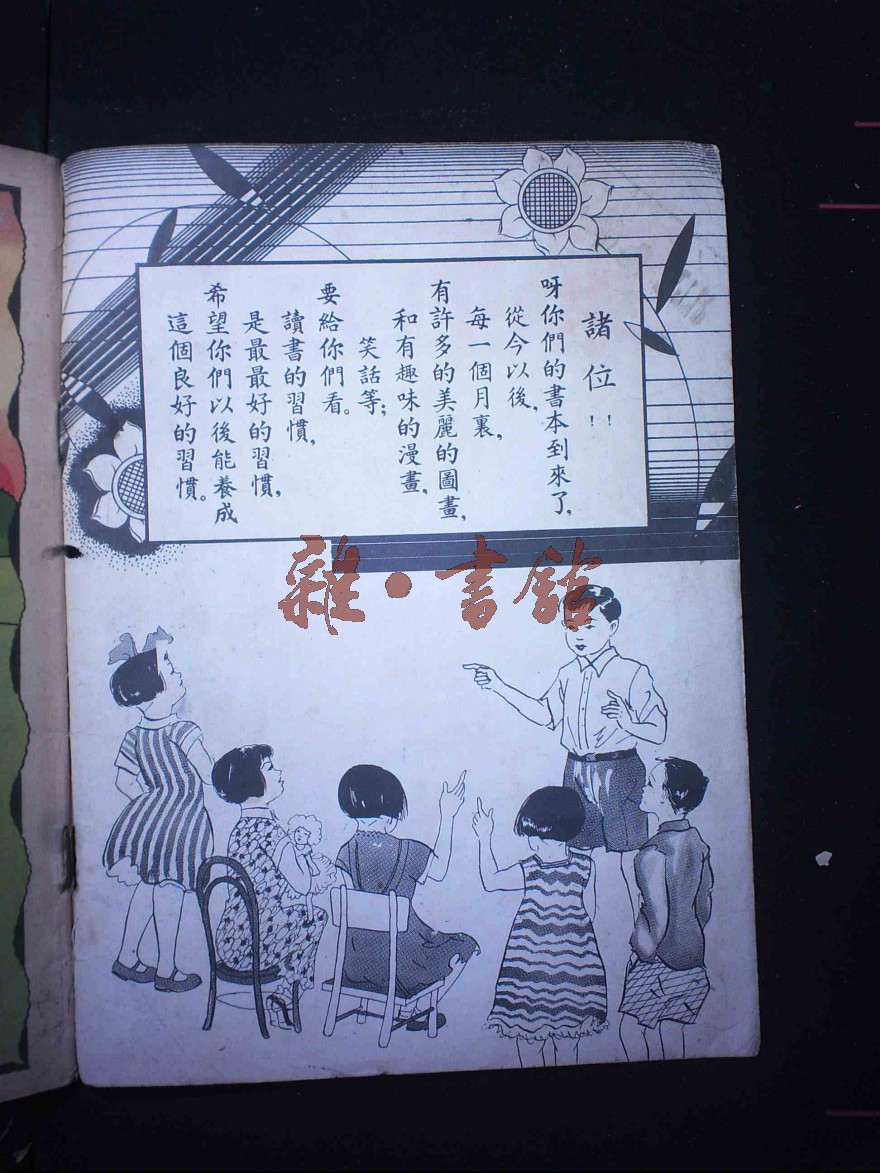 諸位！！
呀你們的書本到來了，
從今以後，
每一個月裏，
有許多的美麗的圖畫，
和有趣味的漫畫，
笑話等；
要給你們看。
讀書的習慣，
是最最好的習慣，
希望你們以後能養成
這個良好的習慣。
雜·書館